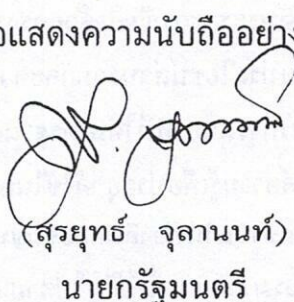 อแสดงความนับถืออย่าง
(สุรยุทธ์ จุลานนท์)
นายกรัฐมนตรี